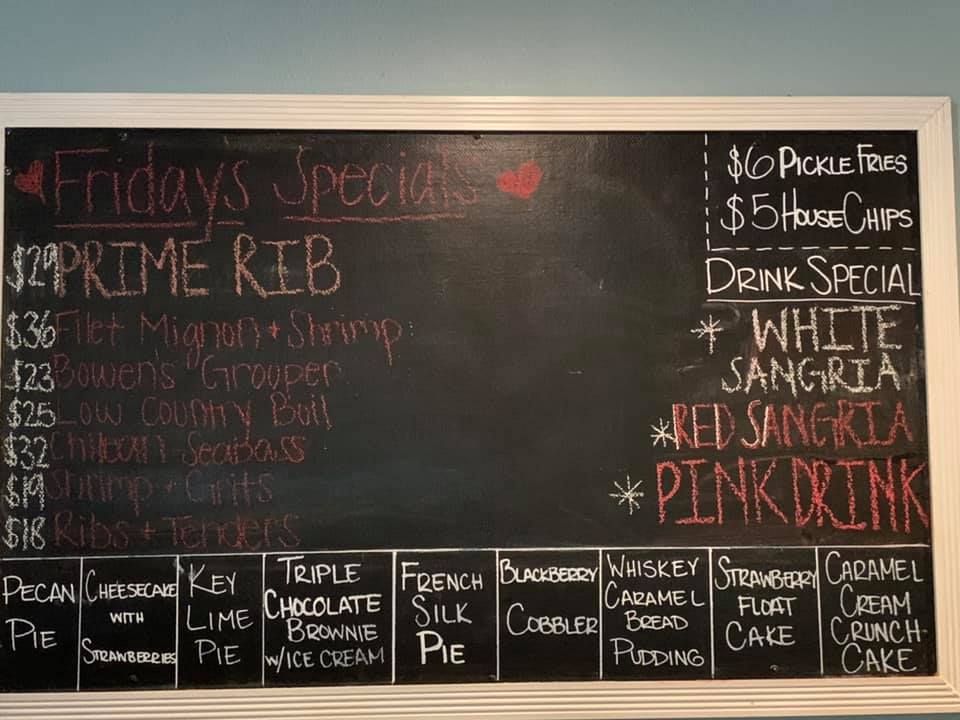 Fridays Specials
$29 PRIME RIB
$36 Filet Mignon + Shrimp
$23 Bowen's Grouper
$25 Low Country Boil
$32 Chilean Seabass
$19 Shrimp + Grits
$18 Ribs + Tenders
$6 PICKLE FRIES
$5 HOUSE CHIPS
DRINK SPECIAL
* WHITE
SANGRIA
* RED SANGRIA
* PINK DRINK
PECAN
PIE
CHEESECAKE
WITH
STRAWBERRIES
KEY
LIME
PIE
TRIPLE
CHOCOLATE
BROWNIE
W/ICE CREAM
FRENCH
SILK
PIE
BLACKBERRY
COBBLER
WHISKEY
CARAMEL
BREAD
PUDDING
STRAWBERRY
FLOAT
CAKE
CARAMEL
CREAM
CRUNCH
CAKE